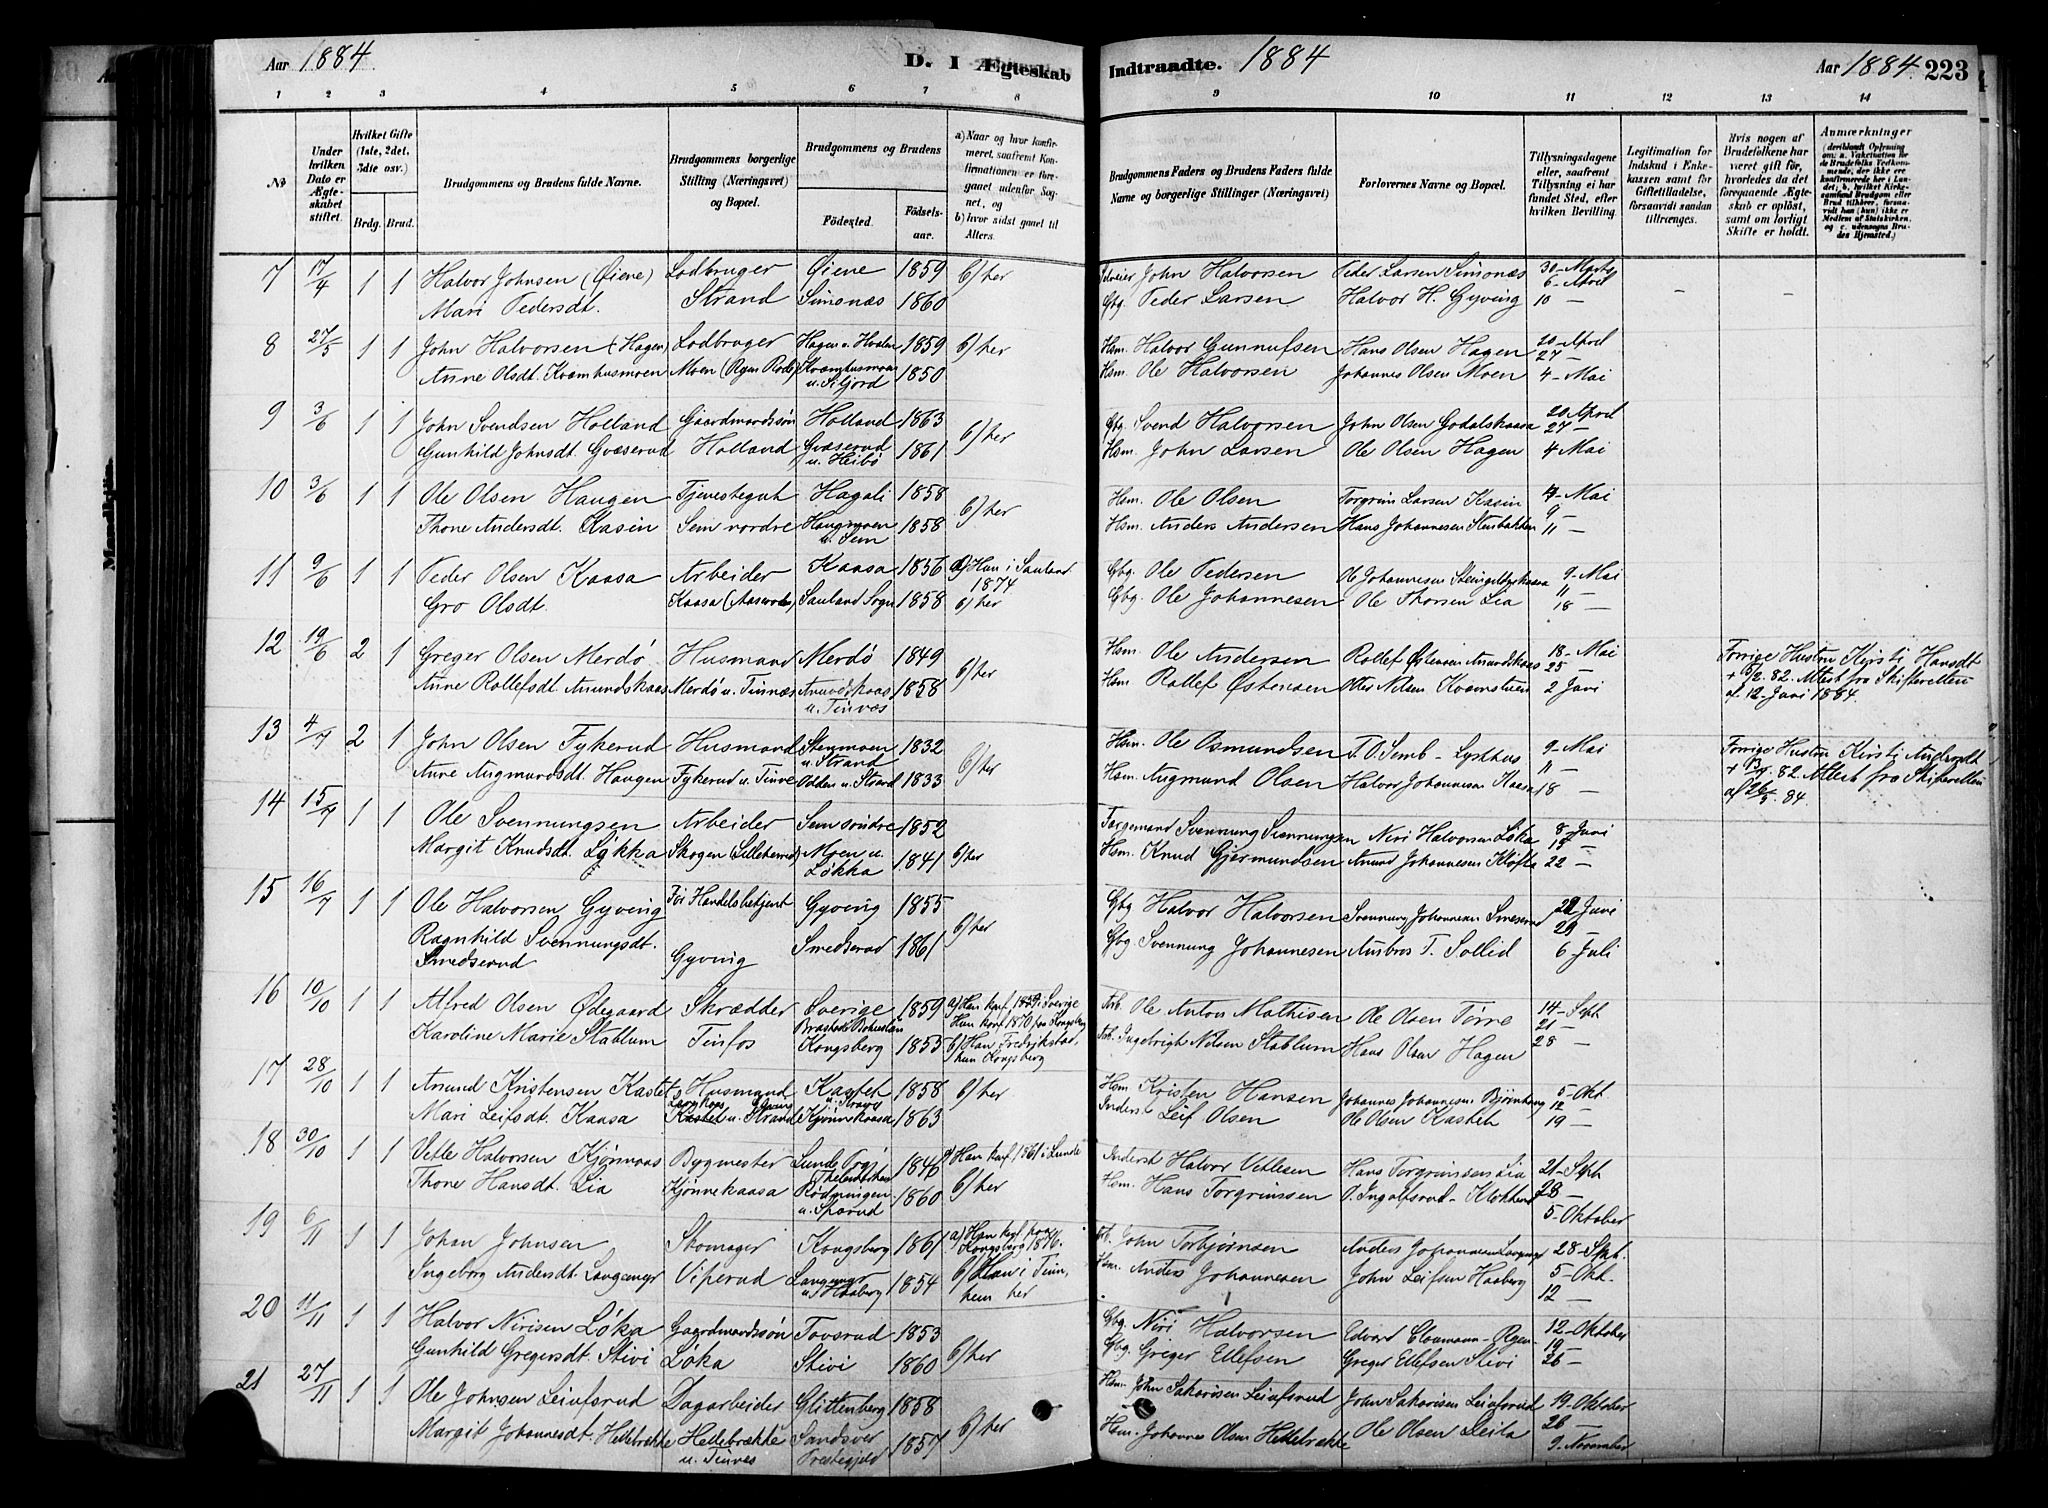 Aar 1884. D. I Ægteskab Indtraadte. 1884 Aar 1884. 223
1 2 3 4 5 6 7 8 9 10 11 12 13 14
No
Under hvilken Dato er Ægteskabet stiftet.
Hvilket Gifte (1ste, 2det, 3die osv.)
Brdg. Brud.
Brudgommens og Brudens fulde Navne.
Brudgommens borgerlige Stilling (Næringsvei) og Bopæl.
Brudgommens og Brudens
Fødested. Fødselsaar.
a) Naar og hvor konfirmeret, saafremt Konfirmationen er foregaaet udenfor Sognet, og
b) hvor sidst gaaet til Alters.
Brudgommens Faders og Brudens Faders fulde Navne og borgerlige Stillinger (Næringsvei)
Forlovernes Navne og Bopæl.
Tillysningsdagene eller, saafremt Tillysning ei har fundet Sted, efter hvilken Bevilling.
Legitimation for Indskud i Enkekassen samt for Giftetilladelse, forsaavidt saadan tiltrænges.
Hvis nogen af Brudefolkene har været gift før, hvorledes da det foregaaende Ægteskab er opløst, samt om lovligt Skifte er holdt.
Anmærkninger
7 17/4 1 1 Halvor Johnsen (Øiene) Lodbruger Øiene 1859 b) her John Halvorsen Peder Larsen Simonæs 30 - Marts
6 - April
Mari Pedersdt. Strand Simonæs 1860 Gbg. Peder Larsen Halvor H. Gyving 10 —
8 27/5 1 1 John Halvorsen (Hagen) Lodbruger Hagen u. Hvalen 1859 b) her Hsm. Halvor Gunnufsen Hans Olsen Hagen 20 - April
27 —
Anne Olsdt. Kvæmhusmoen Moen (Ryen Rode) Kvæmhusmoen u. Siljord 1850 Hsm. Ole Halvorsen Johannes Olsen Moen 4 - Mai
9 3/6 1 1 John Svendsen Holland Gaardmandssøn Holland 1863 b) her Gbg. Svend Halvorsen John Olsen Godalskaasa 20 April
27 —
Gunhild Johnsdt. Gvæserud Holland Gvæserud u. Heibø 1861 Hsm. John Larsen Ole Olsen Hagen 4 Mai
10 3/6 1 1 Ole Olsen Haugen Tjenestegut Hagali 1858 b) her Hsm. Ole Olsen Torgrim Larsen Kasin 4 - Mai
9 —
Thone Andersdt. Kasin Sem nordre Haugmoen u. Sem 1858 Hsm. Anders Andersen Hans Johannesen Stenbakken 11 —
11 9/6 1 1 Peder Olsen Kaasa Arbeider Kaasa 1856 a) Han i Sauland 1874 Gbg. Ole Pedersen Ole Johannesen 9 - Mai
11 —
Gro Olsdt. Kaasa Sauland Sogn 1858 b) her Gbg. Ole Johannesen Ole Thorsen Lia 18 —
12 19/6 2 1 Greger Olsen Merdø Husmand Merdø 1849 b) her Hsm. Ole Andersen Rollef Østensen Amundskaas 18 - Mai
25 —
Anne Rollefsdt. Amundskaas Merdø u. Tinnæs Amundskaas u. Tinnes 1858 Hsm. Rollef Østensen Otter Nilsen Kvæmstuen 2 Juni
Forrige Hustru Kirsti Hansdt + 5/2. 82. Attest fra Skifteretten af 12 - Juni 1884.
13 4/7 2 1 John Olsen Fykerud Husmand Stenmoen u. Strand 1832 b) her Hsm. Ole Osmundsen T. O. Semb - Lysthus 9 - Mai
11 —
Anne Augmundsdt. Haugen Fykerud u. Tinne Odden u. Strand 1833 Hsm. Augmund Olsen Halvor Johannesen Kaasa 18 —
Forrige Hustru Kirsti Andersdt + 13/7. 82. Attest fra Skifteretten af 26/5. 84.
14 15/7 1 1 Ole Svennungsen Arbeider Sem søndre 1852 Svennung Svennungsen Niri Halvorsen Løka 8 - Juni
15 —
Margit Knudsdt. Løkka Skogen (Lilleherred) Moen u. Løkka 1841 b) her Hsm. Knud Gjermundsen Amund Johannesen Kløfta 22 —
15 16/7 1 1 Ole Halvorsen Gyving Før Handelsbetjent Gyving 1855 b) her Gbg Halvor Halvorsen Svennung Johannesen Smeserud 22 Juni
29 —
Ragnhild Svennungsdt. Smedserud Gyving Smedserud 1861 Gbg. Svennung Johannesen Ausbros T. Sollid 6 - Juli
16 10/10 1 1 Alfred Olsen Ødegaard Skrædder Sverige 1859 a) Han konf. i Sverige Arb. Ole Anton Mathisen Ole Olsen Tørre 14 - Sept
21 —
Hun konf. 1870 fra Kongsberg
Karoline Marie Stablum Tinfos Kongsberg 1855 b) Han Fredrikstad, hun Kongsberg Arb. Ingebrigt Nilsen Stablum Hans Olsen Hagen 28 —
17 28/10 1 1 Amund Kristensen Kastet Husmand Kastet 1858 b) her Hsm Kristen Hansen Johannes Johannesen Bjørnhaug 5 - Okt.
12 —
Mari Leifsdt. Kaasa Kastet u. Strand Kjønnekaasa 1863 Inderst Leif Olsen Ole Olsen Kasteh 19 —
18 30/10 1 1 Vetle Halvorsen Kjønnaas Bygmester Lunde Thelemarken 1846 a) Han konf. 1861 i Lunde Inderst Halvor Vetlesen Hans Torgrimssen Lia 21 - Sept
Thone Hansdt. Lia Kjønnekaasa Rødningen u. Sparud 1860 b) her Hsm. Hans Torgrimssen O. Ingolfsrud - Klokker 28 —
5 - Oktober
19 6/11 1 1 Johan Johnsen Skomager Kongsberg 1861 a) Han konf. paa Kongsberg 1876. Arb. John Torbjørnsen Anders Johannesen Langmyr 28 - Sept.
5 - Okt.
Ingeborg Andersdt. Langemyr Viperud Langemyr u. Haaberg 1854 b) Han i Tinn, hun her Hsm. Anders Johannesen John Leifsen Haaberg 12 —
20 11/11 1 1 Halvor Nirisen Løka Gaardmandssøn Tovsrud 1853 b) her Gbg. Niri Halvorsen Edvard Cloumann - Ryen 12 - Oktober
19 —
Gunhild Gregersdt. Stivi Løka Stivi 1860 Gbg. Greger Ellefsen Greger Ellefsen Stivi 26 —
21 27/11 1 1 Ole Johnsen Leiufsrud Dagarbeider Glittenberg 1858 b) her Hsm. John Sakarisen Leiufsrud John Sakarisen Leiufsrud 19 - Oktober
26 —
Margit Johannesdt. Hellebrække Hellebrække u. Tinnes Sandsver Præstegjeld 1857 Hsm. Johannes Olsen Hellebrække Ole Olsen Leila 9 - November